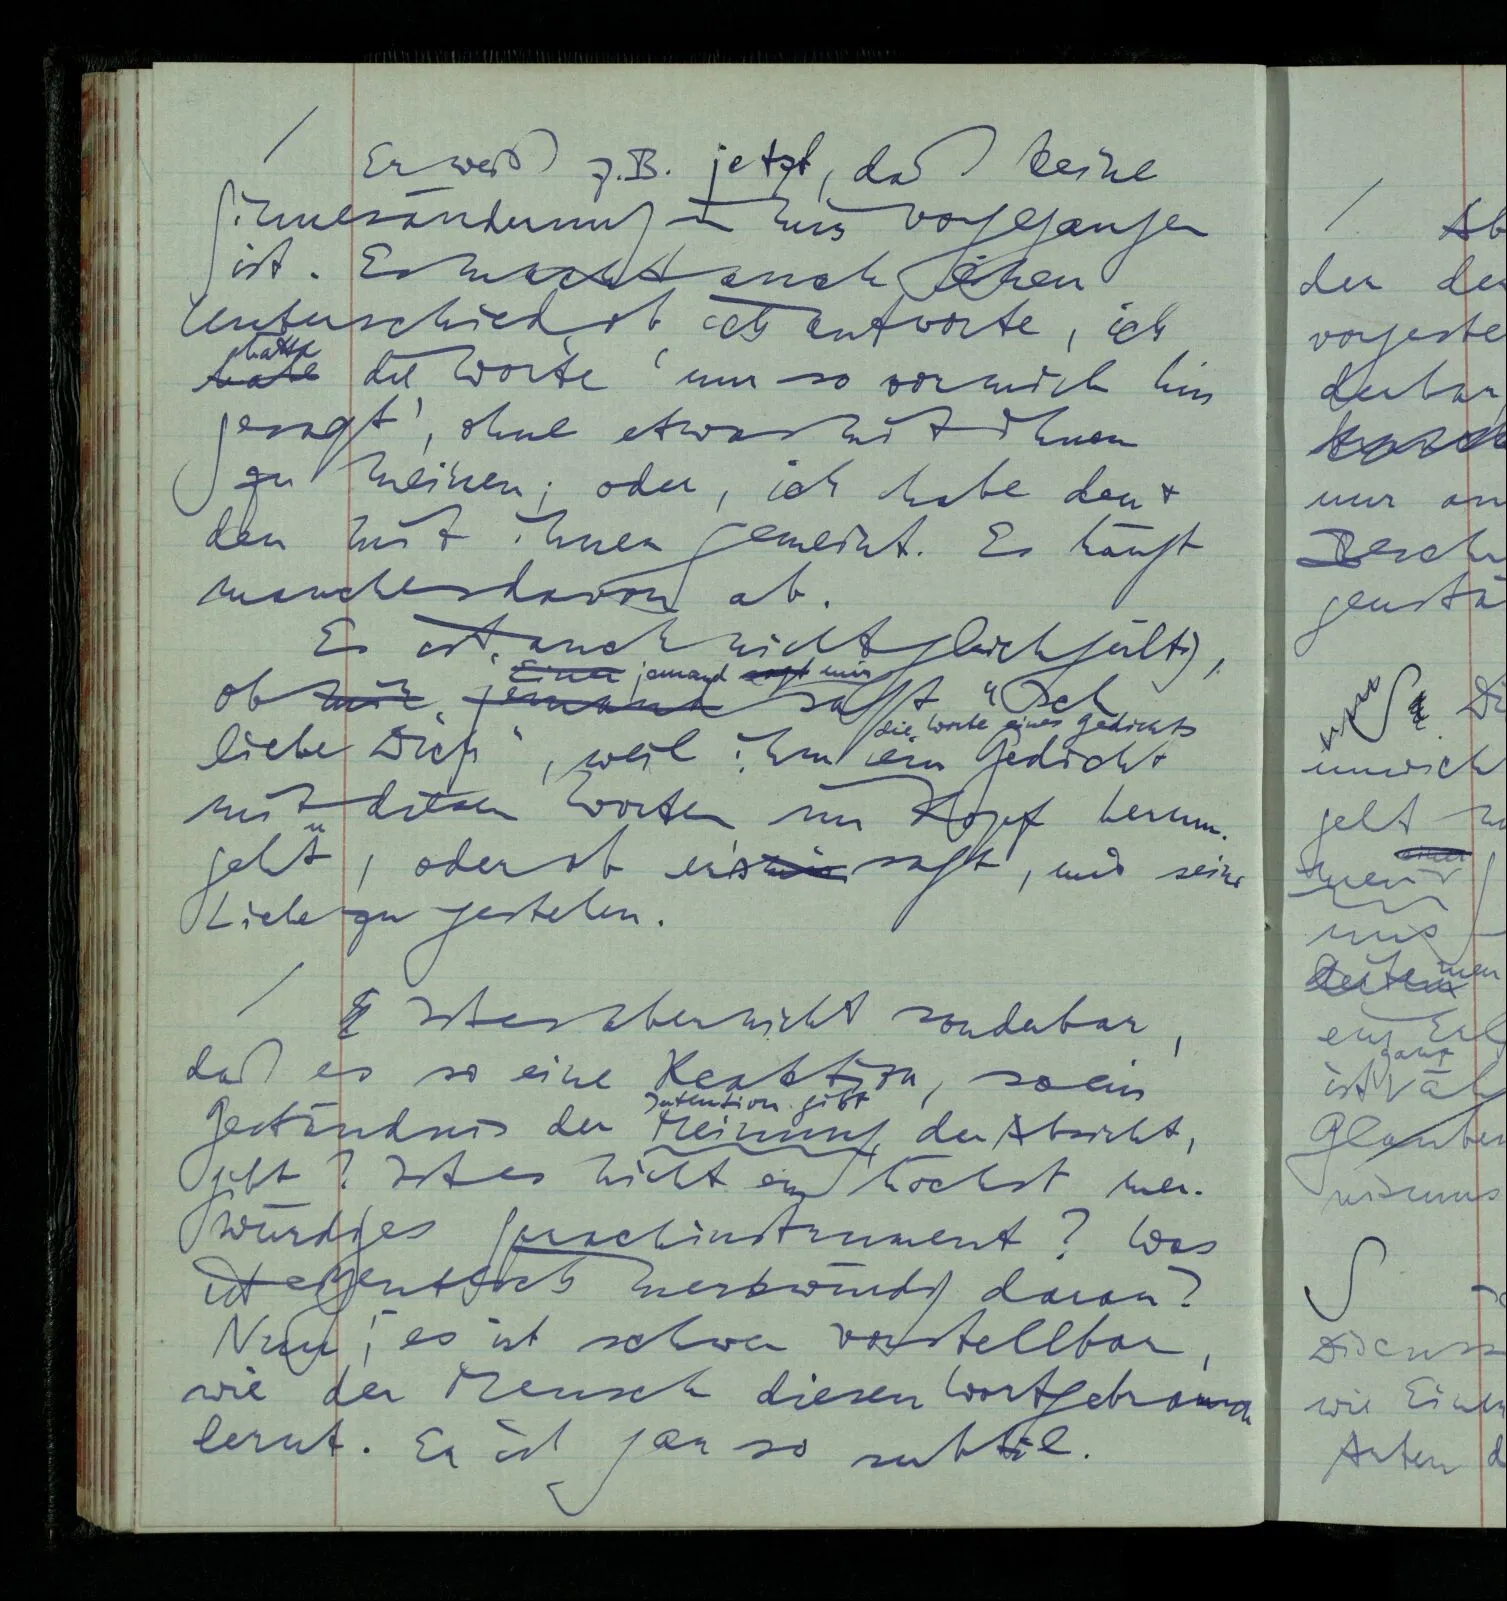 / Er weiß z.B. jetzt, daß keine
Sinnesänderung in mir vorgegangen
ist. Es macht auch einen
Unterschied, ob ich antworte, ich
hätte
habe die Worte 'nur so vor mich hin
gesagt', ohne etwas mit ihnen
zu meinen; oder, ich habe den &
den mit ihnen gemeint. Es hängt
manches davon ab.
Es ist auch nicht gleichgültig,
Einer jemand sagt mir
ob mir jemand sagt "Ich
die Worte eines Gedichts
liebe Dich", weil ihm ein Gedicht
mit diesen Worten im Kopf herum-
geht, oder ob er's mir sagt, mir seine
Liebe zu gestehen.
/ Ist es aber nicht sonderbar,
daß es so eine Reaktion, so ein
Intention gibt
Geständnis der Meinung, der Absicht,
gibt? Ist es nicht ein höchst mer-
würdiges Sprachinstrument? Was
ist eigentlich merkwürdig daran?
Nun, es ist schwer vorstellbar,
wie der Mensch diesen Wortgebrauch
lernt. Er ist gar so subtil.
/ Ab
der der
vorgeste
derbar,
nur an
Besch
genstä
S Di
unwich
gelt
einer
uns
men
ein Erl
ganz
ist äh
Glauben
nismus
S
Discuss
wie Einem
Arten d